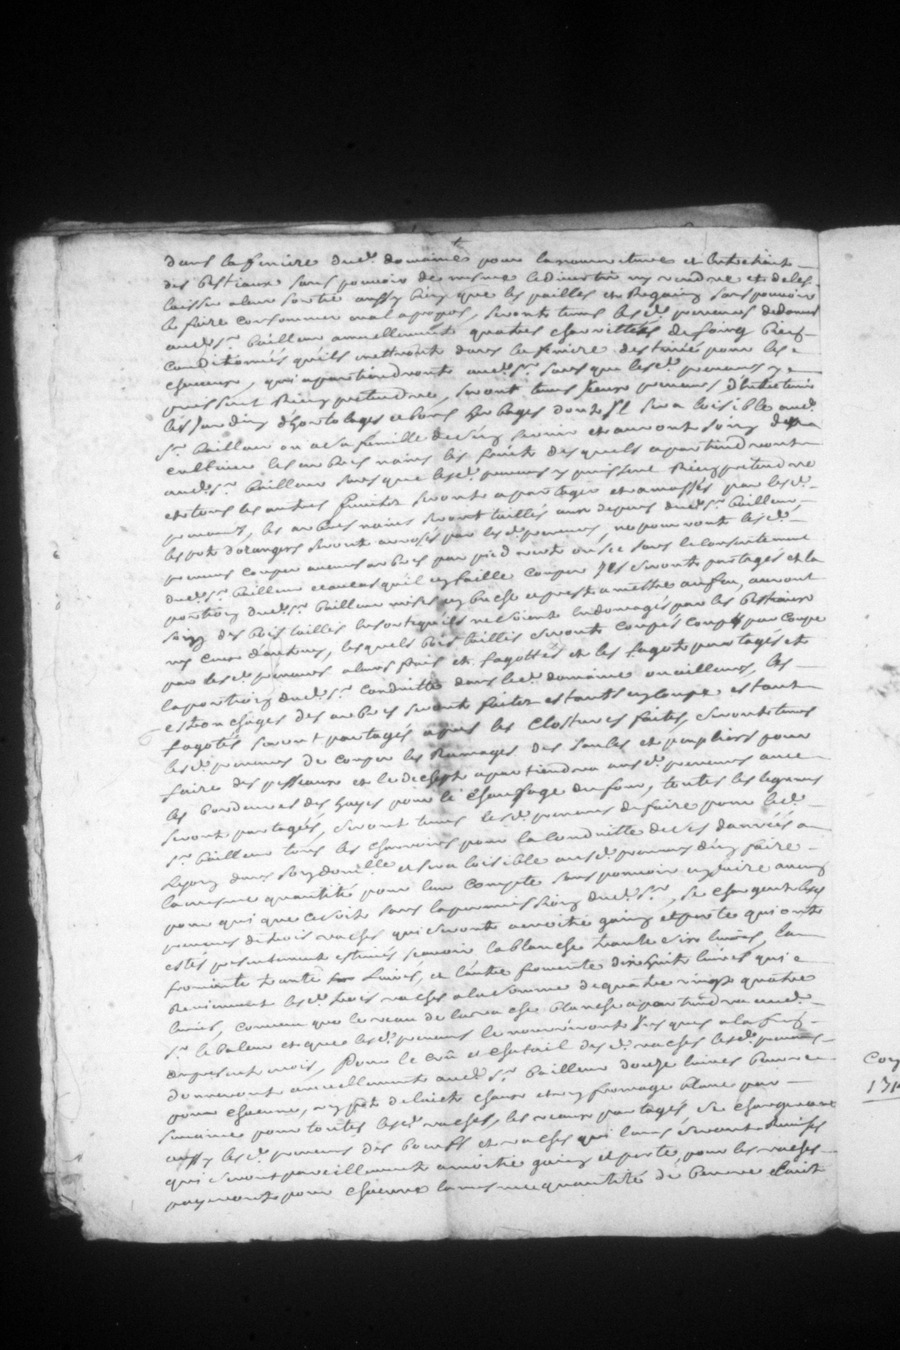 dans la feniere dud. domaine pour la nourriture et lentretient
des bestiaux sans pouvoir de mesme le divertir ny vendre et de les
laisser a leur sortie aussy bien que les pailles et Regaing sans pouvoir
le faire consommer mal apropos, seront tenus lesd. preneurs de donner
aud. sr. bailleur annuellement quatres charrettées de foing bien
conditionnés quils mettront dans la feniere destinée pour les
chevaux, qui apartiendront aud. sr. sans que lesd. preneurs y
puissent Rien pretendre, seront tenus lesd. preneurs d'entretenir
les Jardins d'hortolages et bons herbages dont Il sera loisible aud.
sr. bailleur ou a sa famille de sen servir et auront soing de
cultiver les arbres nains les fruits desquels apartiendront
aud. sr. bailleur sans que lesd. preneurs y puissent Rien pretendre
et tous les autres fruits seront a partager et amassés par lesd.
preneurs, les arbres nains seront taillés aux depens dud. sr. bailleur
les pots dorangers seront arrosés par lesd. preneurs, ne pourront lesd.
preneurs couper aucuns arbres par pied vert ou sec sans le consentement
dud. sr. bailleur et au cas quil en faille couper Ils seront partagés et la
portion dud. sr. bailleur mises en buche et prest a mettre au feu, auront
soing des bois taillés en sorte quils ne soient endomagés par les bestiaux
ny ceux dautruy, lesquels bois taillés seront coupés coupe par coupe
par lesd. preneurs a leurs frais et fagottés et les fagots partagés et
la portion dud. sr. conduitte dans led. domaine ou ailleurs, les
estronchages des arbres seront faites estants en coupe estant
fagotés seront partagés apres les Clostures faites, seront tenus
lesd. preneurs de couper les Ramages des saules et peupliers pour
faire des pesseaux et le dechept apartiendra ausd. preneurs avec
les bordures des hayes pour le chaufage du four, toutes les legumes
seront partagés, seront tenus lesd. preneurs de faire pour led.
sr. bailleur tous les charrois pour la conduitte de ses danrées a
Lyon dans son domicille et sera loisible ausd. preneurs den faire
la mesme quantité pour leur compte sans pouvoir en faire aucun
pour qui que ce soit sans la permission dud. sr., se chargent lesd.
preneurs de trois vaches qui seront a moitié gain et perte qui ont
estés presentement estimés scavoir la blanche trante six livres, la
fromente trante livres, et l'autre fromente dixhuit livres qui
Reviennent lesd. trois vaches a la somme de quatre vingt quatre
livres, convenu que le veau de la vache blanche apartiendra aud.
sr. le baleur et que lesd. preneurs le nourriront Jusques a la fin
du present mois, Pour le Croi et chetail desd. vaches lesd. preneurs
donneront annuellement aud. sr. bailleur douze livres beurre
pour chacune, un pot de laict chaux et un fromage blanc par
semaine pour toutes lesd. vaches, les veaux partagés se chargeront
aussy lesd. preneurs des boeufs et vaches qui leurs seront Remises
qui seront pareillement a moitié gain et perte, pour les vaches
payeront pour chacune la mesme quantité de beurre et lait